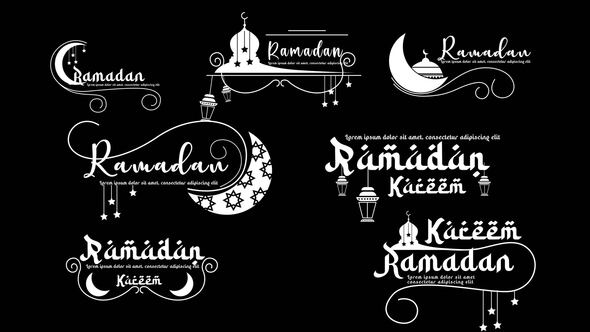 Ramadan
Lorem ipsum dolor sit amet, consectetur adipiscing elit
Ramadan
Lorem ipsum dolor sit amet, consectetur adipiscing elit
Ramadan
Lorem ipsum dolor sit amet, consectetur adipiscing elit
Ramadan
Lorem ipsum dolor sit amet, consectetur adipiscing elit
Lorem ipsum dolor sit amet, consectetur adipiscing elit
Ramadan
Kareem
Ramadan
Lorem ipsum dolor sit amet, consectetur adipiscing elit
Kareem
Kareem
Ramadan
Lorem ipsum dolor sit amet,
consectetur adipiscing elit